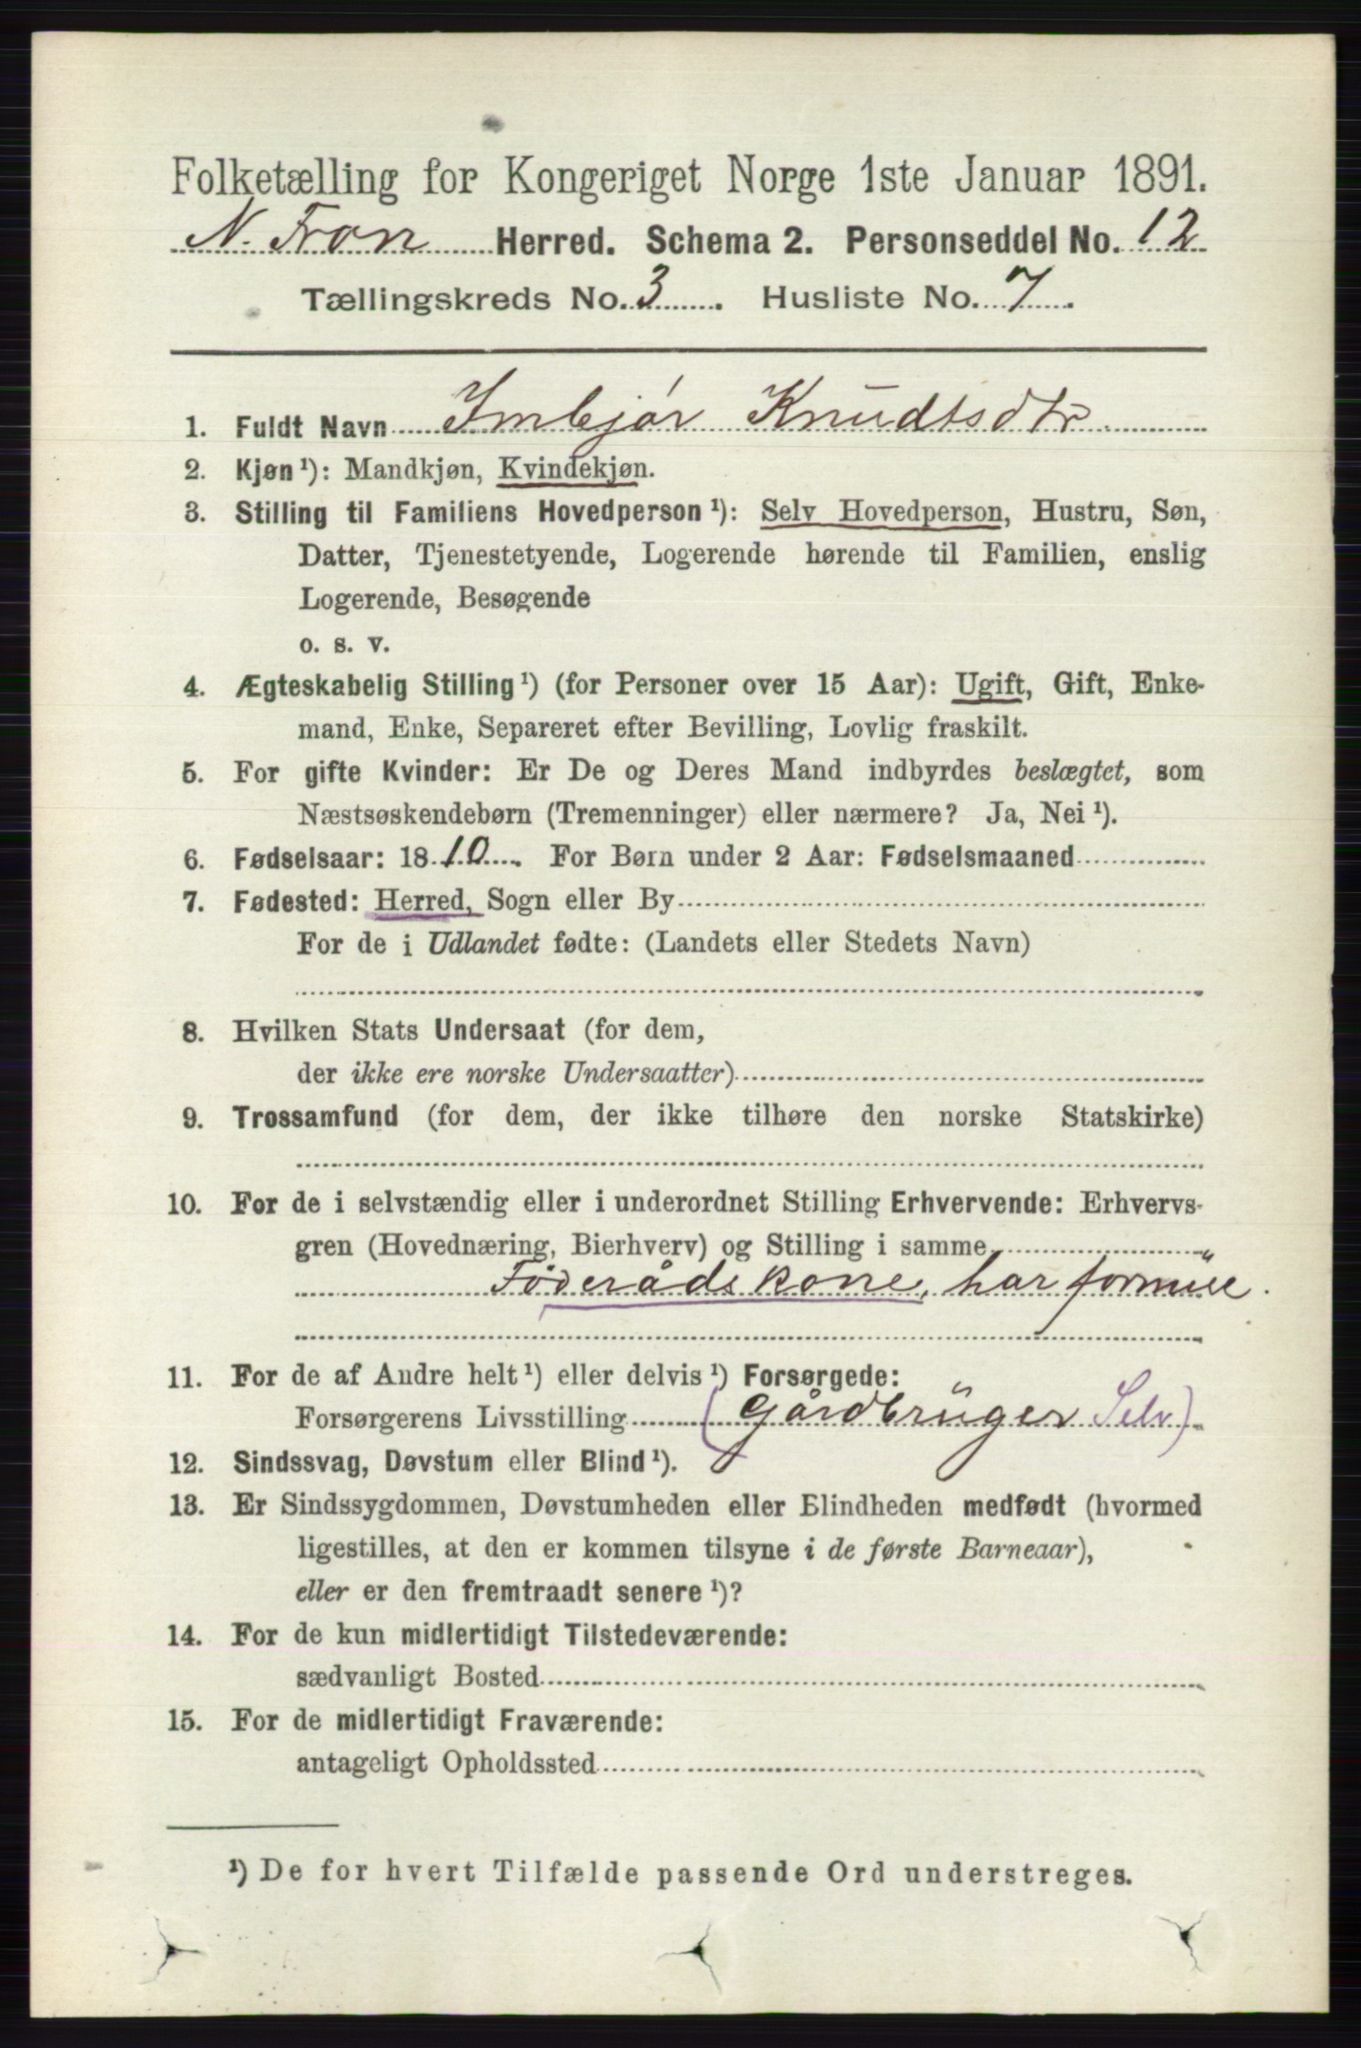 Folketælling for Kongeriget Norge 1ste Januar 1891.
N. Fron Herred. Schema 2. Personseddel No. 12
Tællingskreds No. 3. Husliste No. 7.
1. Fuldt Navn Imbjør Knudtsdtr.
2. Kjøn ¹): Mandkjøn, Kvindekjøn.
3. Stilling til Familiens Hovedperson ¹): Selv Hovedperson, Hustru, Søn,
Datter, Tjenestetyende, Logerende hørende til Familien, enslig
Logerende, Besøgende
o. s. v.
4. Ægteskabelig Stilling ¹) (for Personer over 15 Aar): Ugift, Gift, Enke-
mand, Enke, Separeret efter Bevilling, Lovlig fraskilt.
5. For gifte Kvinder: Er De og Deres Mand indbyrdes beslægtet, som
Næstsøskendebørn (Tremenninger) eller nærmere? Ja, Nei ¹).
6. Fødselsaar: 1810. For Børn under 2 Aar: Fødselsmaaned
7. Fødested: Herred, Sogn eller By
For de i Udlandet fødte: (Landets eller Stedets Navn)
8. Hvilken Stats Undersaat (for dem,
der ikke ere norske Undersaatter)
9. Trossamfund (for dem, der ikke tilhøre den norske Statskirke)
10. For de i selvstændig eller i underordnet Stilling Erhvervende: Erhvervs-
gren (Hovednæring, Bierhverv) og Stilling i samme
Föderådskone, har formüe.
11. For de af Andre helt ¹) eller delvis ¹) Forsørgede:
Forsørgerens Livsstilling (Gårdbrüger Selv)
12. Sindssvag, Døvstum eller Blind ¹).
13. Er Sindssygdommen, Døvstumheden eller Blindheden medfødt (hvormed
ligestilles, at den er kommen tilsyne i de første Barneaar),
eller er den fremtraadt senere ¹)?
14. For de kun midlertidigt Tilstedeværende:
sædvanligt Bosted
15. For de midlertidigt Fraværende:
antageligt Opholdssted
¹) De for hvert Tilfælde passende Ord understreges.